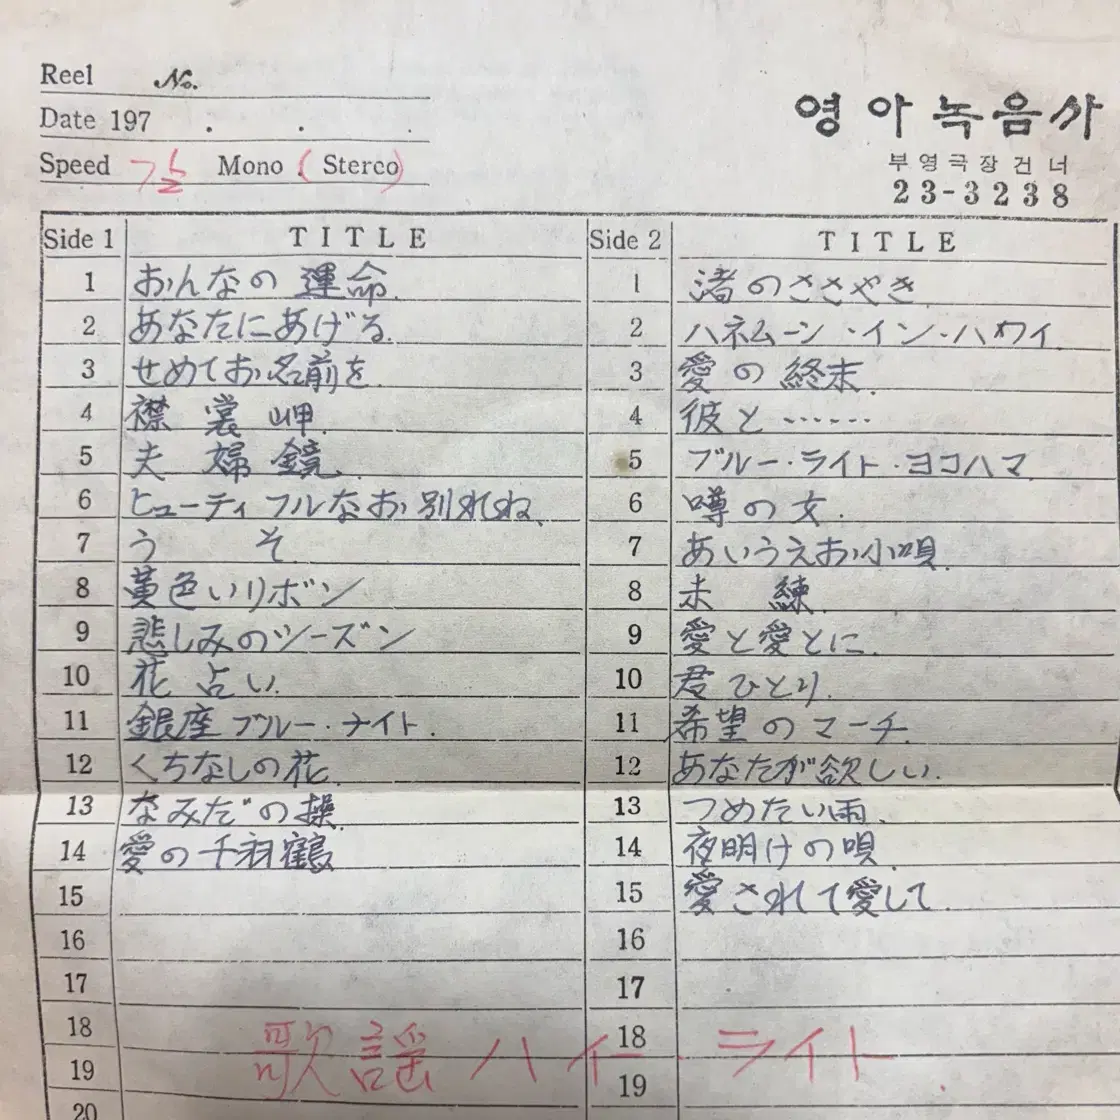 Reel No.
Date 197 . . .
Speed Mono ( Sterco)
영아녹음사
부영극장건너
23-3238
Side 1 TITLE
1 おんなの運命.
2 あなたにあげる.
3 せめてお名前を.
4 襟裳岬.
5 夫婦鏡.
6 ヒューティフルなお別れね.
7 うそ.
8 黄色いリボン
9 悲しみのシーズン
10 花占い.
11 銀座ブルー・ナイト.
12 くちなしの花.
13 なみだの操.
14 愛の千羽鶴
15
16
17
18
19
20
Side 2 TITLE
1 渚のささやき.
2 ハネムーン・イン・ハワイ.
3 愛の終末.
4 彼と……
5 ブルー・ライト・ヨコハマ
6 噂の女.
7 あいうえお小唄.
8 未練.
9 愛と愛とに.
10 君ひとり.
11 希望のマーチ.
12 あなたが欲しい.
13 つめたい雨.
14 夜明けの唄.
15 愛されて愛して.
16
17
18
19
歌謡ハイーライト.